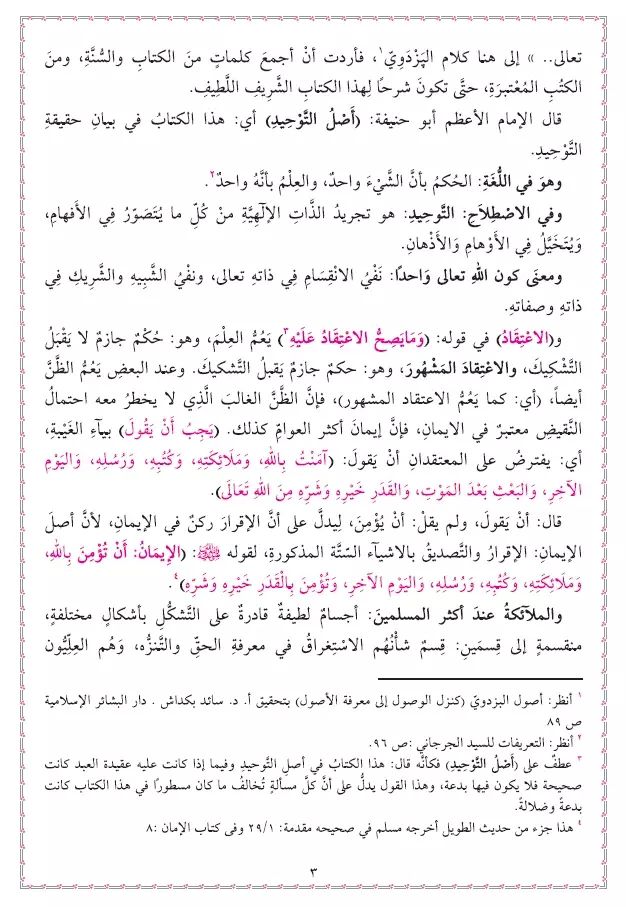 تعالى.. » إلى هنا كلام البَزْدَوِيّ١، فأردت أنْ أجمعَ كلماتٍ منَ الكتابِ والسُّنَّةِ، ومنَ
الكتُبِ المُعْتبرَةِ، حتَّى تكونَ شرحًا لِهذا الكتابِ الشَّرِيفِ اللَّطِيفِ.
قال الإمام الأعظم أبو حنيفة: (أَصْلُ التَّوْحِيدِ) أي: هذا الكتابُ في بيانِ حقيقةِ
التَّوْحِيدِ.
وهوَ في اللُّغَةِ: الحُكمُ بأنَّ الشَّيْءَ واحدٌ، والعِلْمُ بأنَّهُ واحدٌ٢.
وفي الاصْطِلاَحِ: التَّوحِيدِ: هو تجريدُ الذَّاتِ الإلٰهِيَّةِ منْ كُلِّ ما يُتَصَوَّرُ فِي الأفهامِ،
وَيُتَخَيَّلُ فِي الأوْهامِ وَالأذْهانِ.
ومعنَى كون اللهِ تعالى وَاحدًا: نَفْيُ الانْقِسَامِ فِي ذاتهِ تعالى، ونفْيُ الشَّبِيهِ والشَّرِيكِ فِي
ذاتهِ وصفاتهِ.
و(الاعْتِقَادُ) في قوله: (وَمَايَصِحُّ الاعْتِقَادُ عَلَيْهِ٣) يَعُمُّ العِلْمَ، وهو: حُكْمٌ جازمٌ لا يَقْبَلُ
التَّشْكِيكَ، والاعْتِقادَ المَشْهُورَ، وهو: حكمٌ جازمٌ يَقبلُ التَّشكيكَ. وعند البعضِ يَعُمُّ الظَّنَّ
أيضاً، (أي: كما يَعُمُّ الاعتقاد المشهور)، فإنَّ الظَّنَّ الغالبَ الَّذِي لا يخطرُ معه احتمالُ
النَّقيضِ معتبرٌ في الايمانِ، فإنَّ إيمانَ أكثر العوامِّ كذلك. (يَجِبُ أَنْ يَقُولَ) بياءِ الغَيْبَةِ،
أي: يفترضُ على المعتقدانِ أنْ يَقولَ: (آمَنْتُ بِاللهِ، وَمَلَائِكَتِهِ، وَكُتُبِهِ، وَرُسُلِهِ، وَاليَوْمِ
الآخِرِ، وَالبَعْثِ بَعْدَ المَوْتِ، وَالقَدَرِ خَيْرِهِ وَشَرِّهِ مِنَ اللهِ تَعَالَى).
قال: أنْ يَقولَ، ولم يقلْ: أنْ يُؤْمِنَ، لِيدلَّ على أنَّ الإقرارَ ركنٌ في الإيمانِ، لأنَّ أصلَ
الإيمنِ: الإقرارُ والتَّصديقُ بالاشيآءِ السِّتَّة المذكورةِ، لقوله ﷺ: (الإِيمَانُ: أَنْ تُؤْمِنَ بِاللهِ،
وَمَلَائِكَتِهِ، وَكُتُبِهِ، وَرُسُلِهِ، وَاليَوْمِ الآخِرِ، وَتُؤْمِنَ بِالْقَدَرِ خَيْرِهِ وَشَرِّهِ)٤.
والملآئكةُ عندَ أكثر المسلمين: أجسامٌ لطيفةٌ قادرةٌ على التَّشكُّلِ بأشكالٍ مختلفةٍ،
منقسمةٍ إلى قِسمَينِ: قِسمٌ شأْنُهُم الاسْتِغراقُ في معرفةِ الحقِّ والتَّنزُّه، وَهُم العِلِّيُّون
١ أنظر: أصول البزدويّ (كنزل الوصول إلى معرفة الأصول) بتحقيق أ. د. سائد بكداش . دار البشائر الإسلامية
ص ٨٩
٢ أنظر: التعريفات للسيد الجرجاني :ص ٩٦.
٣ عطفٌ على (أَصْلُ التَّوْحِيدِ) فكأنَّه قال: هذا الكتابُ في أصلِ التَّوحيدِ وفيما إذا كانت عليه عقيدة العبد كانت
صحيحة فلا يكون فيها بدعة، وهذا القول يدلُّ على أنَّ كلَّ مسألةٍ تُخالفُ ما كان مسطورًا في هذا الكتاب كانت
بدعةً وضلالةً.
٤ هذا جزء من حديث الطويل أخرجه مسلم في صحيحه مقدمة: ٢٩/١ وفى كتاب الإمان :٨
٣